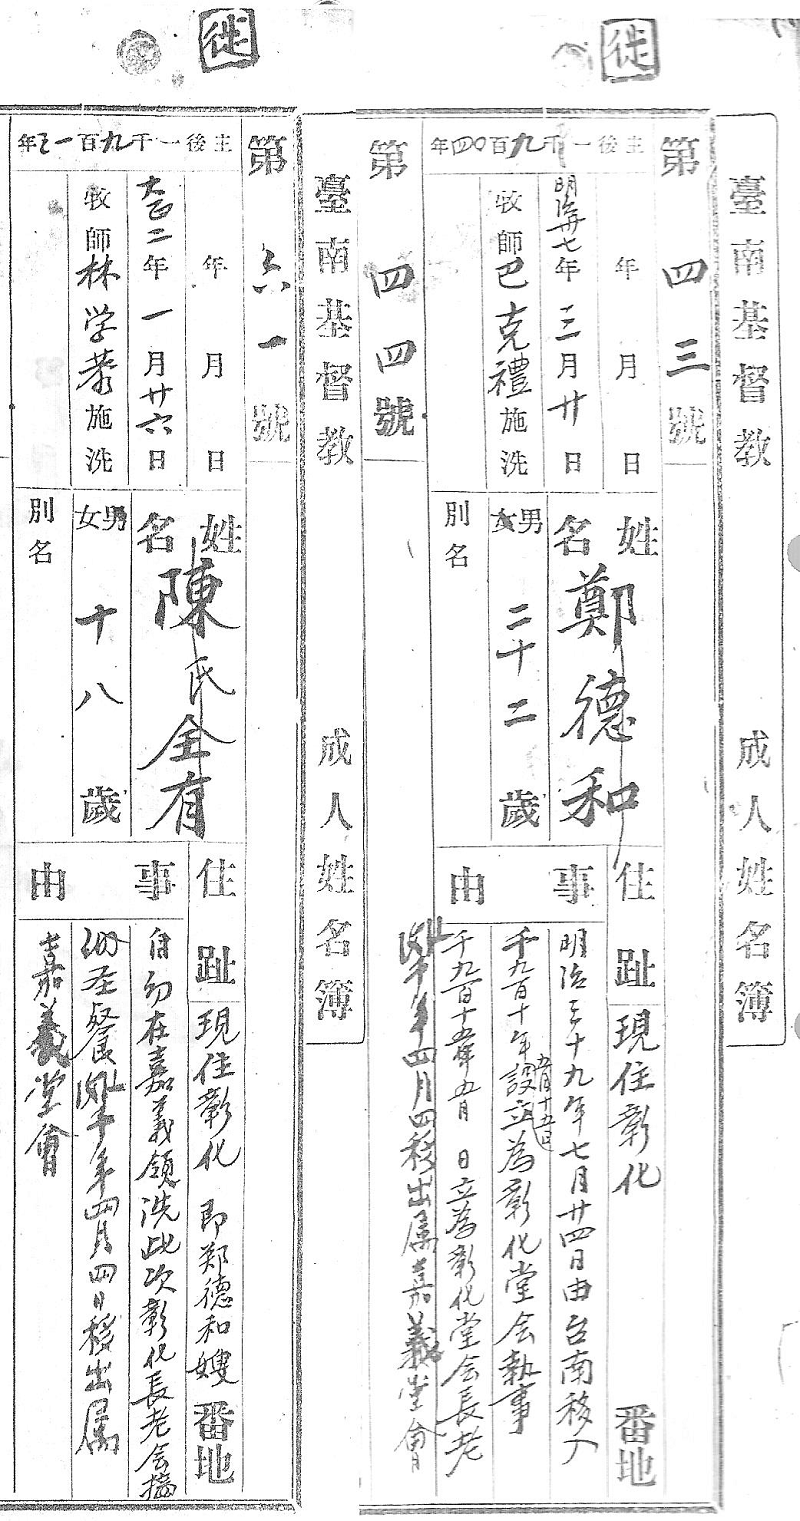 徙
臺南基督教 成人姓名簿
第四三號
年 月 日
姓名 鄭德和
住趾 現住彰化 番地
主後一千九百〇四年
明治卅七年三月廿日
牧師巴克禮施洗
男女 二十二歲
別名
事由
明治三十九年七月廿四日由台南移入
千九百十年五月十五日設立為彰化堂会執事
千九百十五年五月 日立為彰化堂会長老
年四月四移出属嘉義堂會
第四四號
徙
臺南基督教 成人姓名簿
第六一號
年 月 日
姓名 陳氏全有
住趾 現住彰化 即鄭德和嫂 番地
主後一千九百一三年
大正二年一月廿六日
牧師林学恭施洗
男女 十八歲
別名
事由
自幼在嘉義領洗此次彰化長老会
聖餐 年四月四日移出属
嘉義堂會